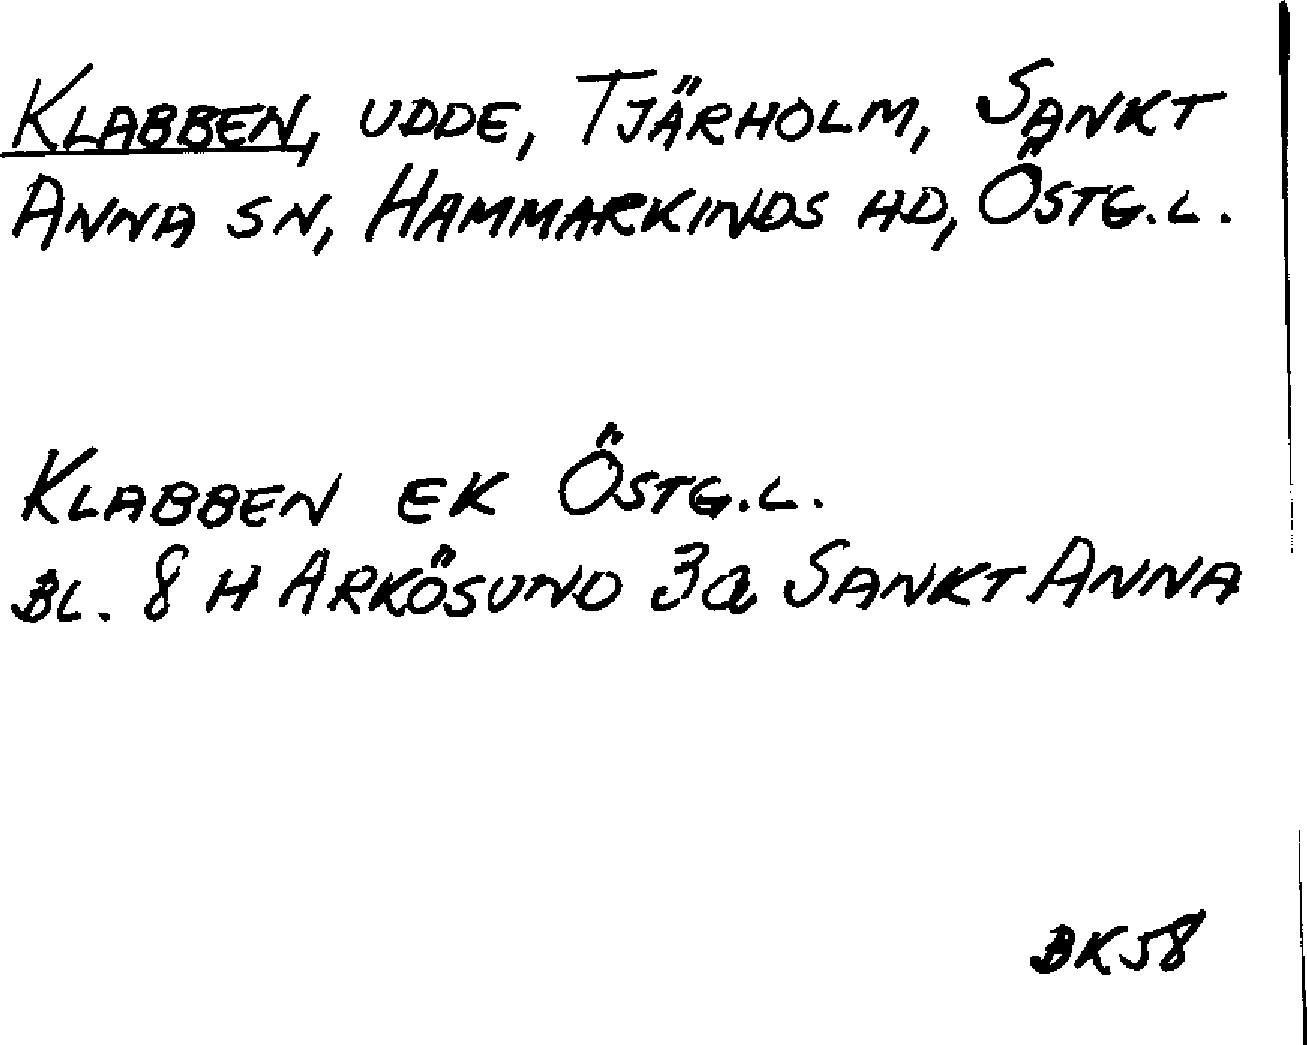 KLABBEN, UDDE, TJÄRHOLM, SANKT
ANNA SN, HAMMARKINDS HD, ÖSTG.L.
KLABBEN EK ÖSTG.L.
BL. 8 H ARKÖSUND 3a SANKT ANNA
BK58